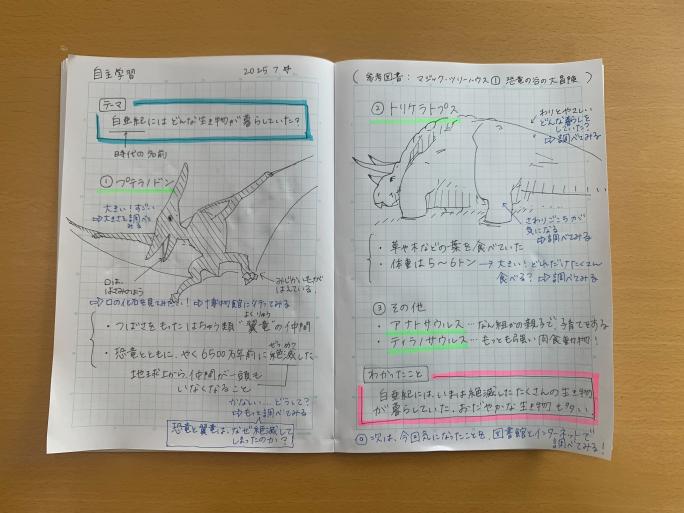 自主学習 2025 7 4
テーマ
白亜紀にはどんな生き物が暮らしていた?
時代の名前
① プテラノドン
大きい!すごい
⇨大きさを調べてみる
口は、
はさみのよう
みじかい毛が
はえている。
⇨口の化石を見てみたい!⇨博物館に
・つばさをもったはちゅう類"翼竜"の仲間
よくりゅう
・恐竜とともに、やく6500万年前に絶滅した
ぜつめつ
地球上から、仲間が一頭も
いなくなること
かなしい…どうして?
⇨もっと調べてみる
恐竜と翼竜は、なぜ絶滅して
しまったのか?
(参考図書:マジック・ツリーハウス① 恐竜の谷の大冒険)
② トリケラトプス
わりとやさしい
どんな暮らしを
していた?
⇨調べてみる
さわりごこちが
気になる
⇨調べてみる
・草や木などの葉を食べていた
・体重は5〜6トン→大きい!どれだけたくさん
食べる?⇨調べてみる
③ その他
・アナトサウルス…なん組かの親子で、子育てをする
・ティラノサウルス…もっとも強い肉食動物!
わかったこと
白亜紀には、いまは絶滅したたくさんの生き物
が暮らしていた。おだやかな生き物も多い。
次は、今回気になったことを、図書館とインターネットで
調べてみる!